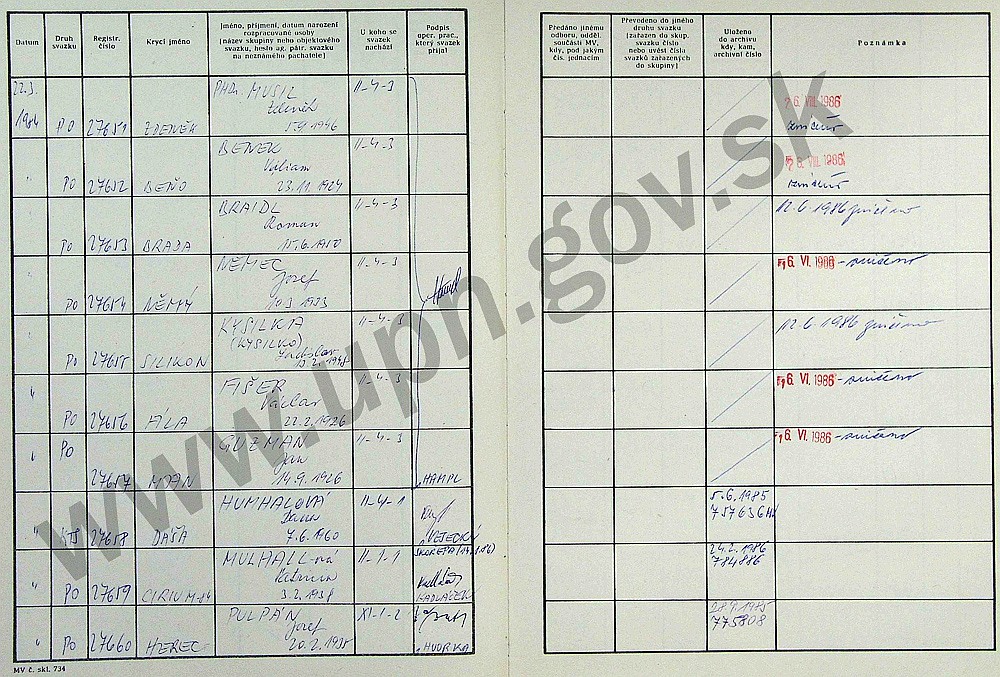 Datum
Druh svazku
Registr. číslo
Krycí jméno
Jméno, příjmení, datum narození
rozpracované osoby
(název skupiny nebo objektového
svazku, heslo ag. pátr. svazku
na neznámého pachatele)
U koho se svazek nachází
Podpis oper. prac., který svazek přijal
Předáno jinému
odboru, odděl.
součásti MV,
kdy, pod jakým
čís. jednacím
Převedeno do jiného
druhu svazku
(zařazen do skup.
svazku číslo
nebo uvést čísla
svazků zařazených
do skupiny)
Uloženo
do archivu
kdy, kam,
archivní číslo
Poznámka
22.3. PHDr. MUSIL II-4-3
Zdeněk 6. VIII. 1986
1984 PO 27651 ZDENĚK 5.9.1946 zničeno
BENEK II-4-3
Viliam 6. VIII. 1986
" PO 27652 BEŇO 23.11.1924 zničeno
BRAIDL II-4-3 12.6.1986 zničeno
Roman
" PO 27653 BRAJA 15.6.1910
NĚMEC II-4-3 6. VI. 1986 - zničeno
Jozef
" PO 27654 NĚMÝ 10.3.1933
KYSILKA II-4-3 12.6.1986 zničeno
(KYSILKO)
Ladislav
" PO 27655 SILIKON 13.2.1948
FIŠER II-4-3 6. VI. 1986 - zničeno
Václav
" PO 27656 FÍLA 22.2.1926
" PO GUZMAN II-4-3 6. VI. 1986 - zničeno
Jan
27657 14.9.1926 HAMPL
HUMHALOVÁ II-4-1 5.6.1985
Dana 757636
" 27658 DÁŠA 7.6.1960
MULHALL-ová II-1-1 ŠKOREPA 24.2.1986
784886
" PO 27659 CIRIUM-84 3.2.1938 KADLÁČEK
PULPÁN XI-1-2 28.9.1985
Jozef 775808
" PO 27660 HEREC 20.2.1935 HVORKA
MV č. skl. 734
www.upn.gov.sk